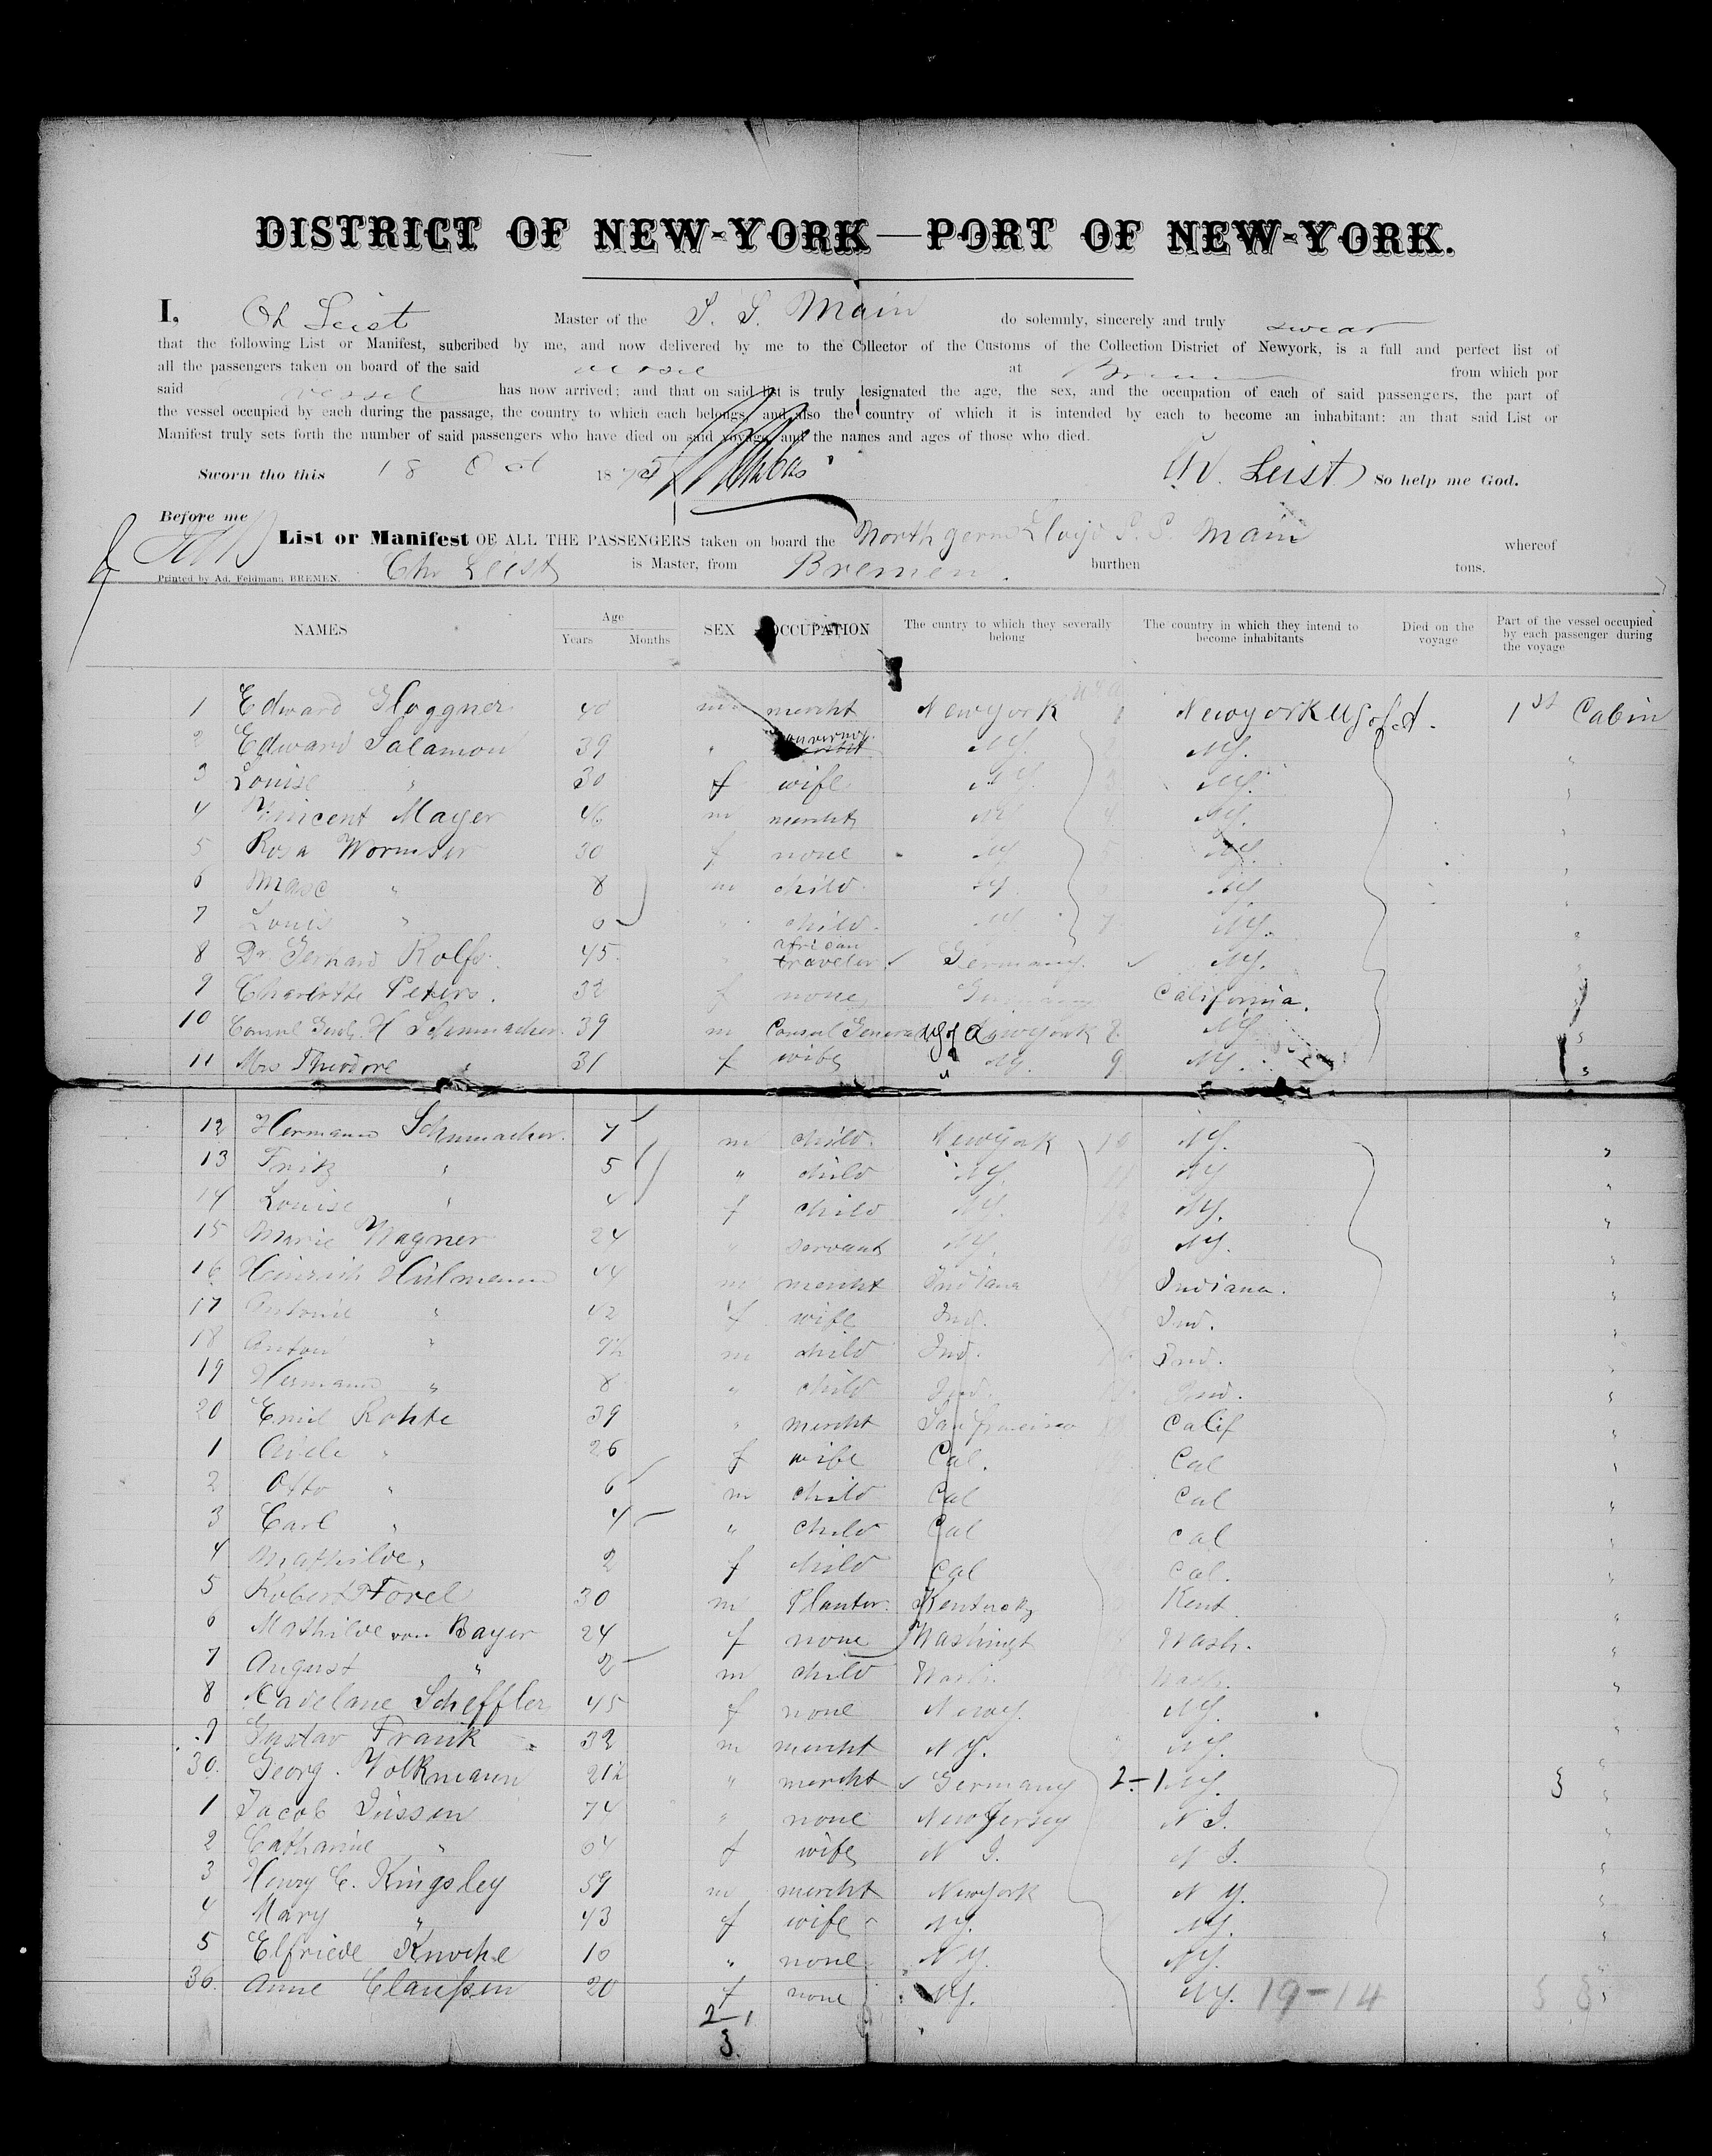 DISTRICT OF NEW-YORK—PORT OF NEW-YORK.
I, Ch Leist Master of the S. S. Main do solemnly, sincerely and truly swear
that the following List or Manifest, subcribed by me, and now delivered by me to the Collector of the Customs of the Collection District of Newyork, is a full and perfect list of
all the passengers taken on board of the said vessel at Bremen from which por
said vessel has now arrived; and that on said list is truly designated the age, the sex, and the occupation of each of said passengers, the part of
the vessel occupied by each during the passage, the country to which each belongs, and also the country of which it is intended by each to become an inhabitant: an that said List or
Manifest truly sets forth the number of said passengers who have died on said voyage, and the names and ages of those who died.
Sworn tho this 18 Oct 1875 Ch. Leist So help me God.
Before me
List or Manifest OF ALL THE PASSENGERS taken on board the North germ Lloyd S. S. Main whereof
Printed by Ad. Feldmann BREMEN. Chr Leist is Master, from Bremen. burthen tons.
NAMES Age Years Months SEX OCCUPATION The cuntry to which they severally belong The country in which they intend to become inhabitants Died on the voyage Part of the vessel occupied by each passenger during the voyage
1 Edward Gloggner 40 m mercht Newyork 1 Newyork U S of A. 1st Cabin
2 Edward Salamon 39 " NY. NY. "
3 Louise " 30 f wife NY. NY. "
4 Vincent Mayer 46 m mercht NY NY. "
5 Rosa Wormser 30 f none NY NY. "
6 Maxe " 8 m child NY NY "
7 Louis " 6 " child. NY NY. "
8 Dr. Gerhard Rolfs. 45. " african traveler Germany. NY. "
9 Charlotte Peters. 32 f none Germany California. "
10 Consul Genl. H Schummacher 39 m Consul General U S of A Newyork 8 NY "
11 Mrs Theodore " 31 f wife " NY. 9 NY. "
12 Hermann Schumacher. 7 m child. Newyork 10 NY. "
13 Fritz " 5 " child NY. 11 NY "
14 Louise " 4 f child NY. 12 NY. "
15 Marie Wagner 24 " servant NY. NY. "
16 Heinrich Hülmann 44 m mercht Indiana Indiana. "
17 Antonie " 42 f wife Ind. Ind. "
18 Anton " 9½ m child Ind. Ind. "
19 Hermann " 8 " child Ind. Ind. "
20 Emil Rohte 39 " mercht San francisco Calif "
1 Adele " 26 f wife Cal. Cal "
2 Otto " 6 m child Cal Cal "
3 Carl " 4 " child Cal Cal "
4 Mathilde " 2 f child Cal Cal. "
5 Robert Forel 30 m Planter. Kentucky Kent. "
6 Mathilde von Bayer 24 f none Washingt Wash. "
7 August " 2 m child Wash. Wash. "
8 Madelane Scheffler 45 f none Newy. NY. "
9 Gustav Frank 32 m mercht NY. NY. "
30. Georg. Volkmann 21½ " mercht Germany 2-1 NY. "
1 Jacob Jüssen 74 " none New Jersey N J. "
2 Catharine " 64 f wife N J. N J. "
3 Henry C. Kingsley 59 m mercht Newyork N Y. "
4 Mary " 43 f wife NY. NY. "
5 Elfriede Knoche 10 " none NY. NY. "
36. Anne Claußen 20 f none NY. NY. 19-14 "
2-1
3.